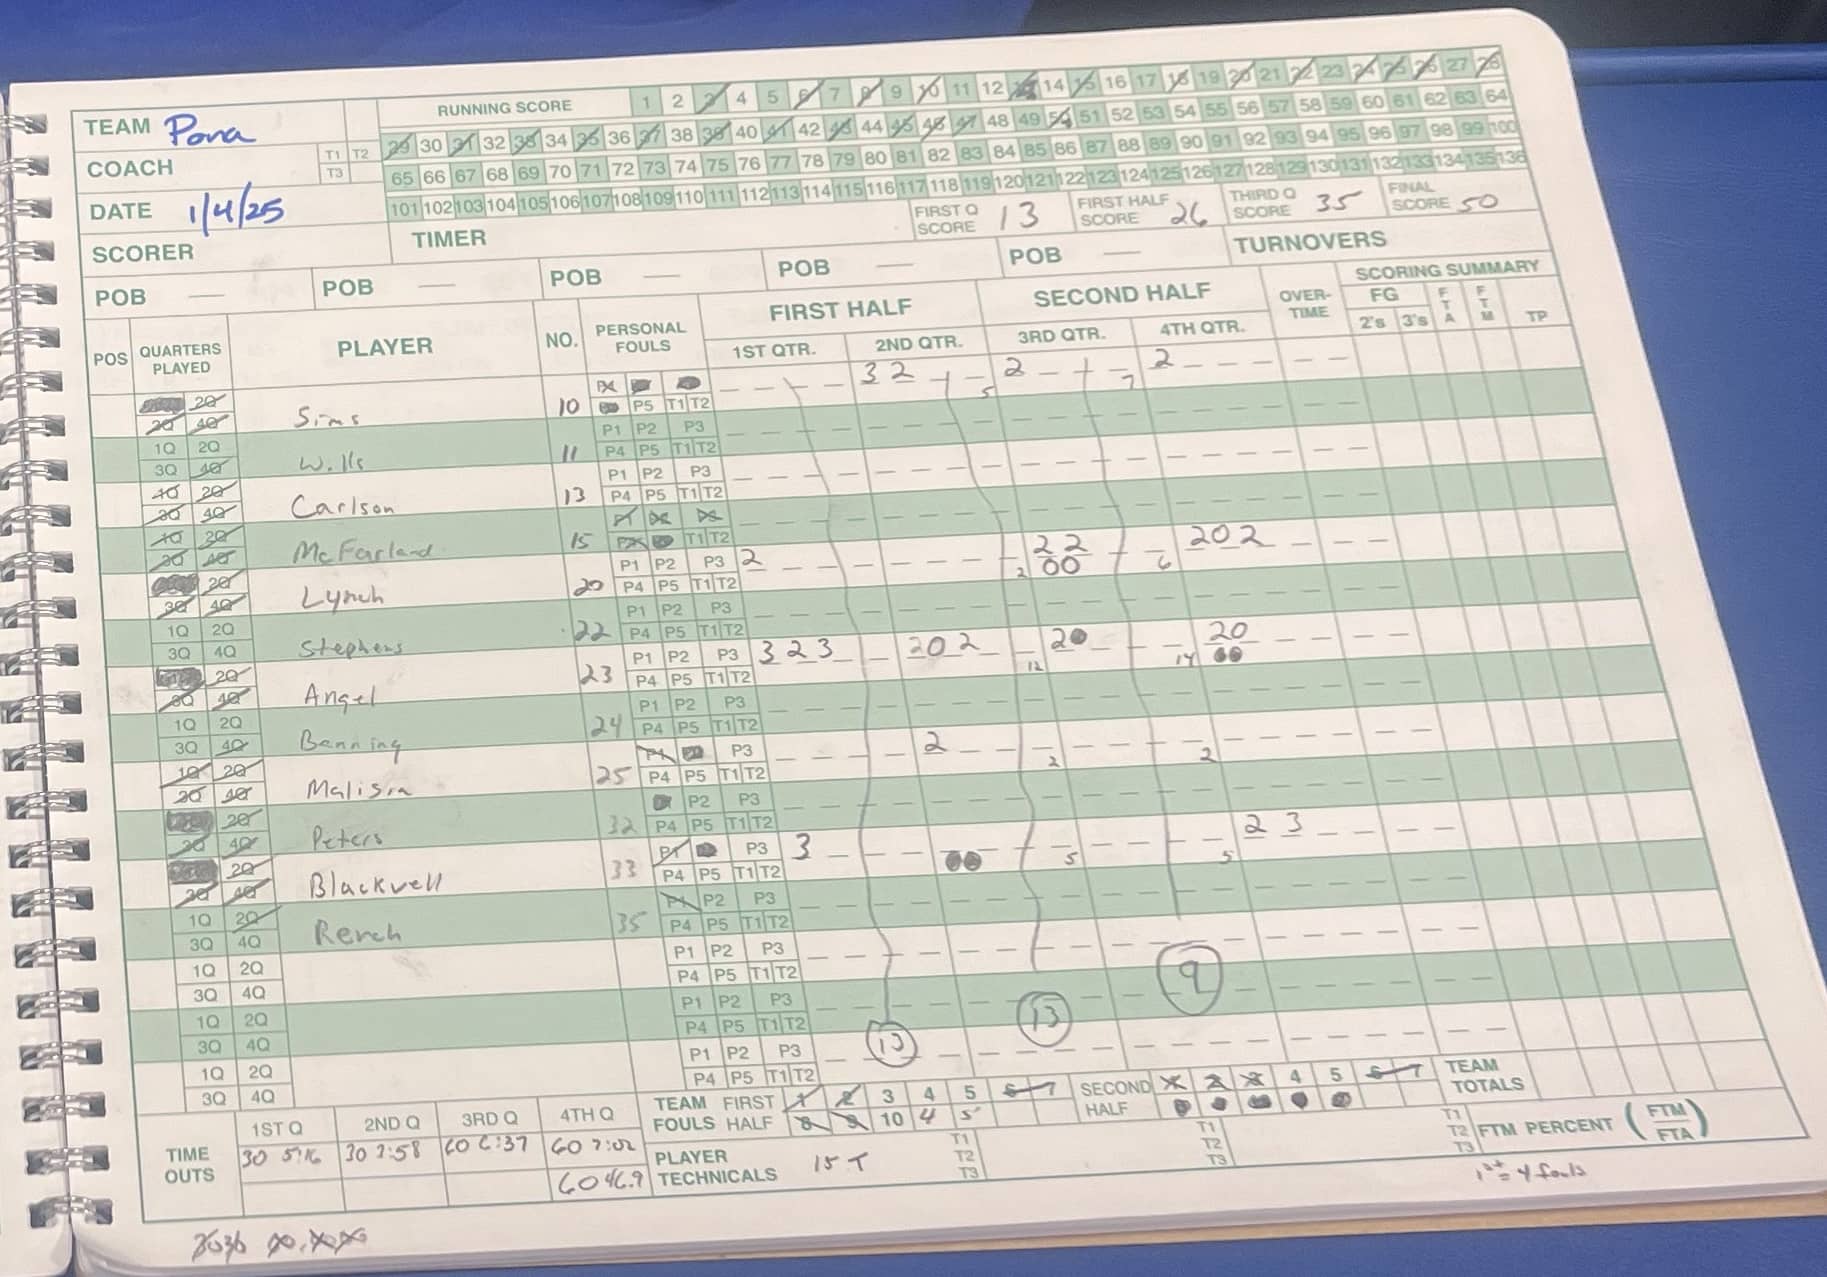 RUNNING SCORE 1 2 3 4 5 6 7 8 9 10 11 12 13 14 15 16 17 18 19 20 21 22 23 24 25 26 27 28
TEAM Pana 29 30 31 32 33 34 35 36 37 38 39 40 41 42 43 44 45 46 47 48 49 50 51 52 53 54 55 56 57 58 59 60 61 62 63 64
COACH T1 T2 T3 65 66 67 68 69 70 71 72 73 74 75 76 77 78 79 80 81 82 83 84 85 86 87 88 89 90 91 92 93 94 95 96 97 98 99 100
DATE 1/4/25 101 102 103 104 105 106 107 108 109 110 111 112 113 114 115 116 117 118 119 120 121 122 123 124 125 126 127 128 129 130 131 132 133 134 135 136
SCORER TIMER FIRST Q SCORE 13 FIRST HALF SCORE 26 THIRD Q SCORE 35 FINAL SCORE 50
POB — POB — POB — POB — POB — TURNOVERS
POS QUARTERS PLAYED PLAYER NO. PERSONAL FOULS FIRST HALF SECOND HALF OVER-TIME SCORING SUMMARY
1ST QTR. 2ND QTR. 3RD QTR. 4TH QTR. FG 2's 3's FTA FTM TP
2Q 3Q 4Q Sims 10 P5 T1 T2 3 2 5 2 7 2
1Q 2Q 3Q 4Q Wills 11 P1 P2 P3 P4 P5 T1 T2
1Q 2Q 3Q 4Q Carlson 13 P1 P2 P3 P4 P5 T1 T2
1Q 2Q 3Q 4Q McFarland 15 P1 P2 P3 P4 T1 T2
2Q 3Q 4Q Lynch 20 P1 P2 P3 P4 P5 T1 T2 2 2 2 2 00 6 2 0 2
1Q 2Q 3Q 4Q Stephens 22 P1 P2 P3 P4 P5 T1 T2
2Q 3Q 4Q Angel 23 P1 P2 P3 P4 P5 T1 T2 3 2 3 2 0 2 12 2 14 2 0
1Q 2Q 3Q 4Q Benning 24 P1 P2 P3 P4 P5 T1 T2
1Q 2Q 3Q 4Q Malisia 25 P1 P3 P4 P5 T1 T2 2 2 2
2Q 3Q 4Q Peters 32 P2 P3 P4 P5 T1 T2
2Q 3Q 4Q Blackwell 33 P1 P3 P4 P5 T1 T2 3 5 5 2 3
1Q 2Q 3Q 4Q Rench 35 P1 P2 P3 P4 P5 T1 T2
1Q 2Q 3Q 4Q P1 P2 P3 P4 P5 T1 T2 9
1Q 2Q 3Q 4Q P1 P2 P3 P4 P5 T1 T2 13 13
1Q 2Q 3Q 4Q P1 P2 P3 P4 P5 T1 T2
TIME OUTS 1ST Q 2ND Q 3RD Q 4TH Q TEAM FOULS FIRST HALF 1 2 3 4 5 6 7 8 9 10 4 5 SECOND HALF 1 2 3 4 5 6 7 TEAM TOTALS
30 5:16 30 2:58 60 6:37 60 7:02 PLAYER TECHNICALS 15 T T1 T2 T3 T1 T2 T3 T1 T2 T3 FTM PERCENT (FTM/FTA)
60 46.9
1st = 4 fouls